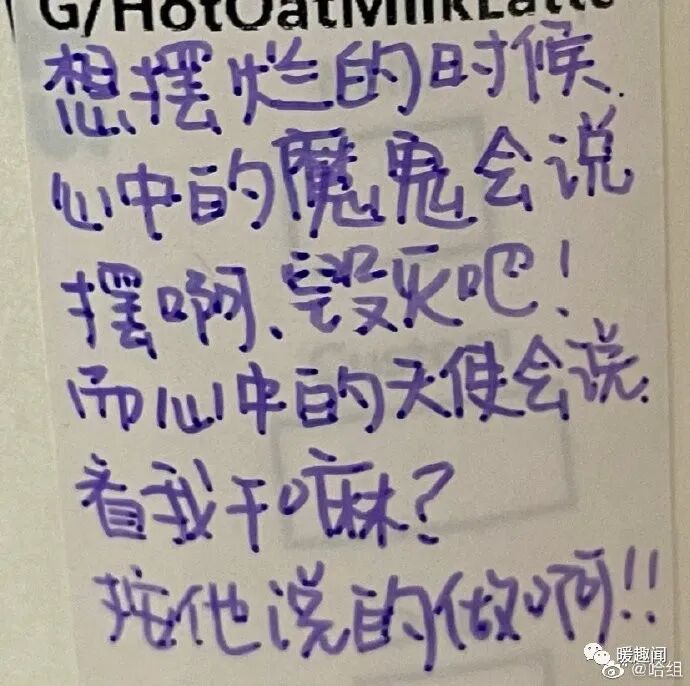 G/HotOatMilkLatte
想摆烂的时候
心中的魔鬼会说
摆啊、毁灭吧！
而心中的天使会说
看我干嘛？
按他说的做啊!!
暖趣闻
@哈组